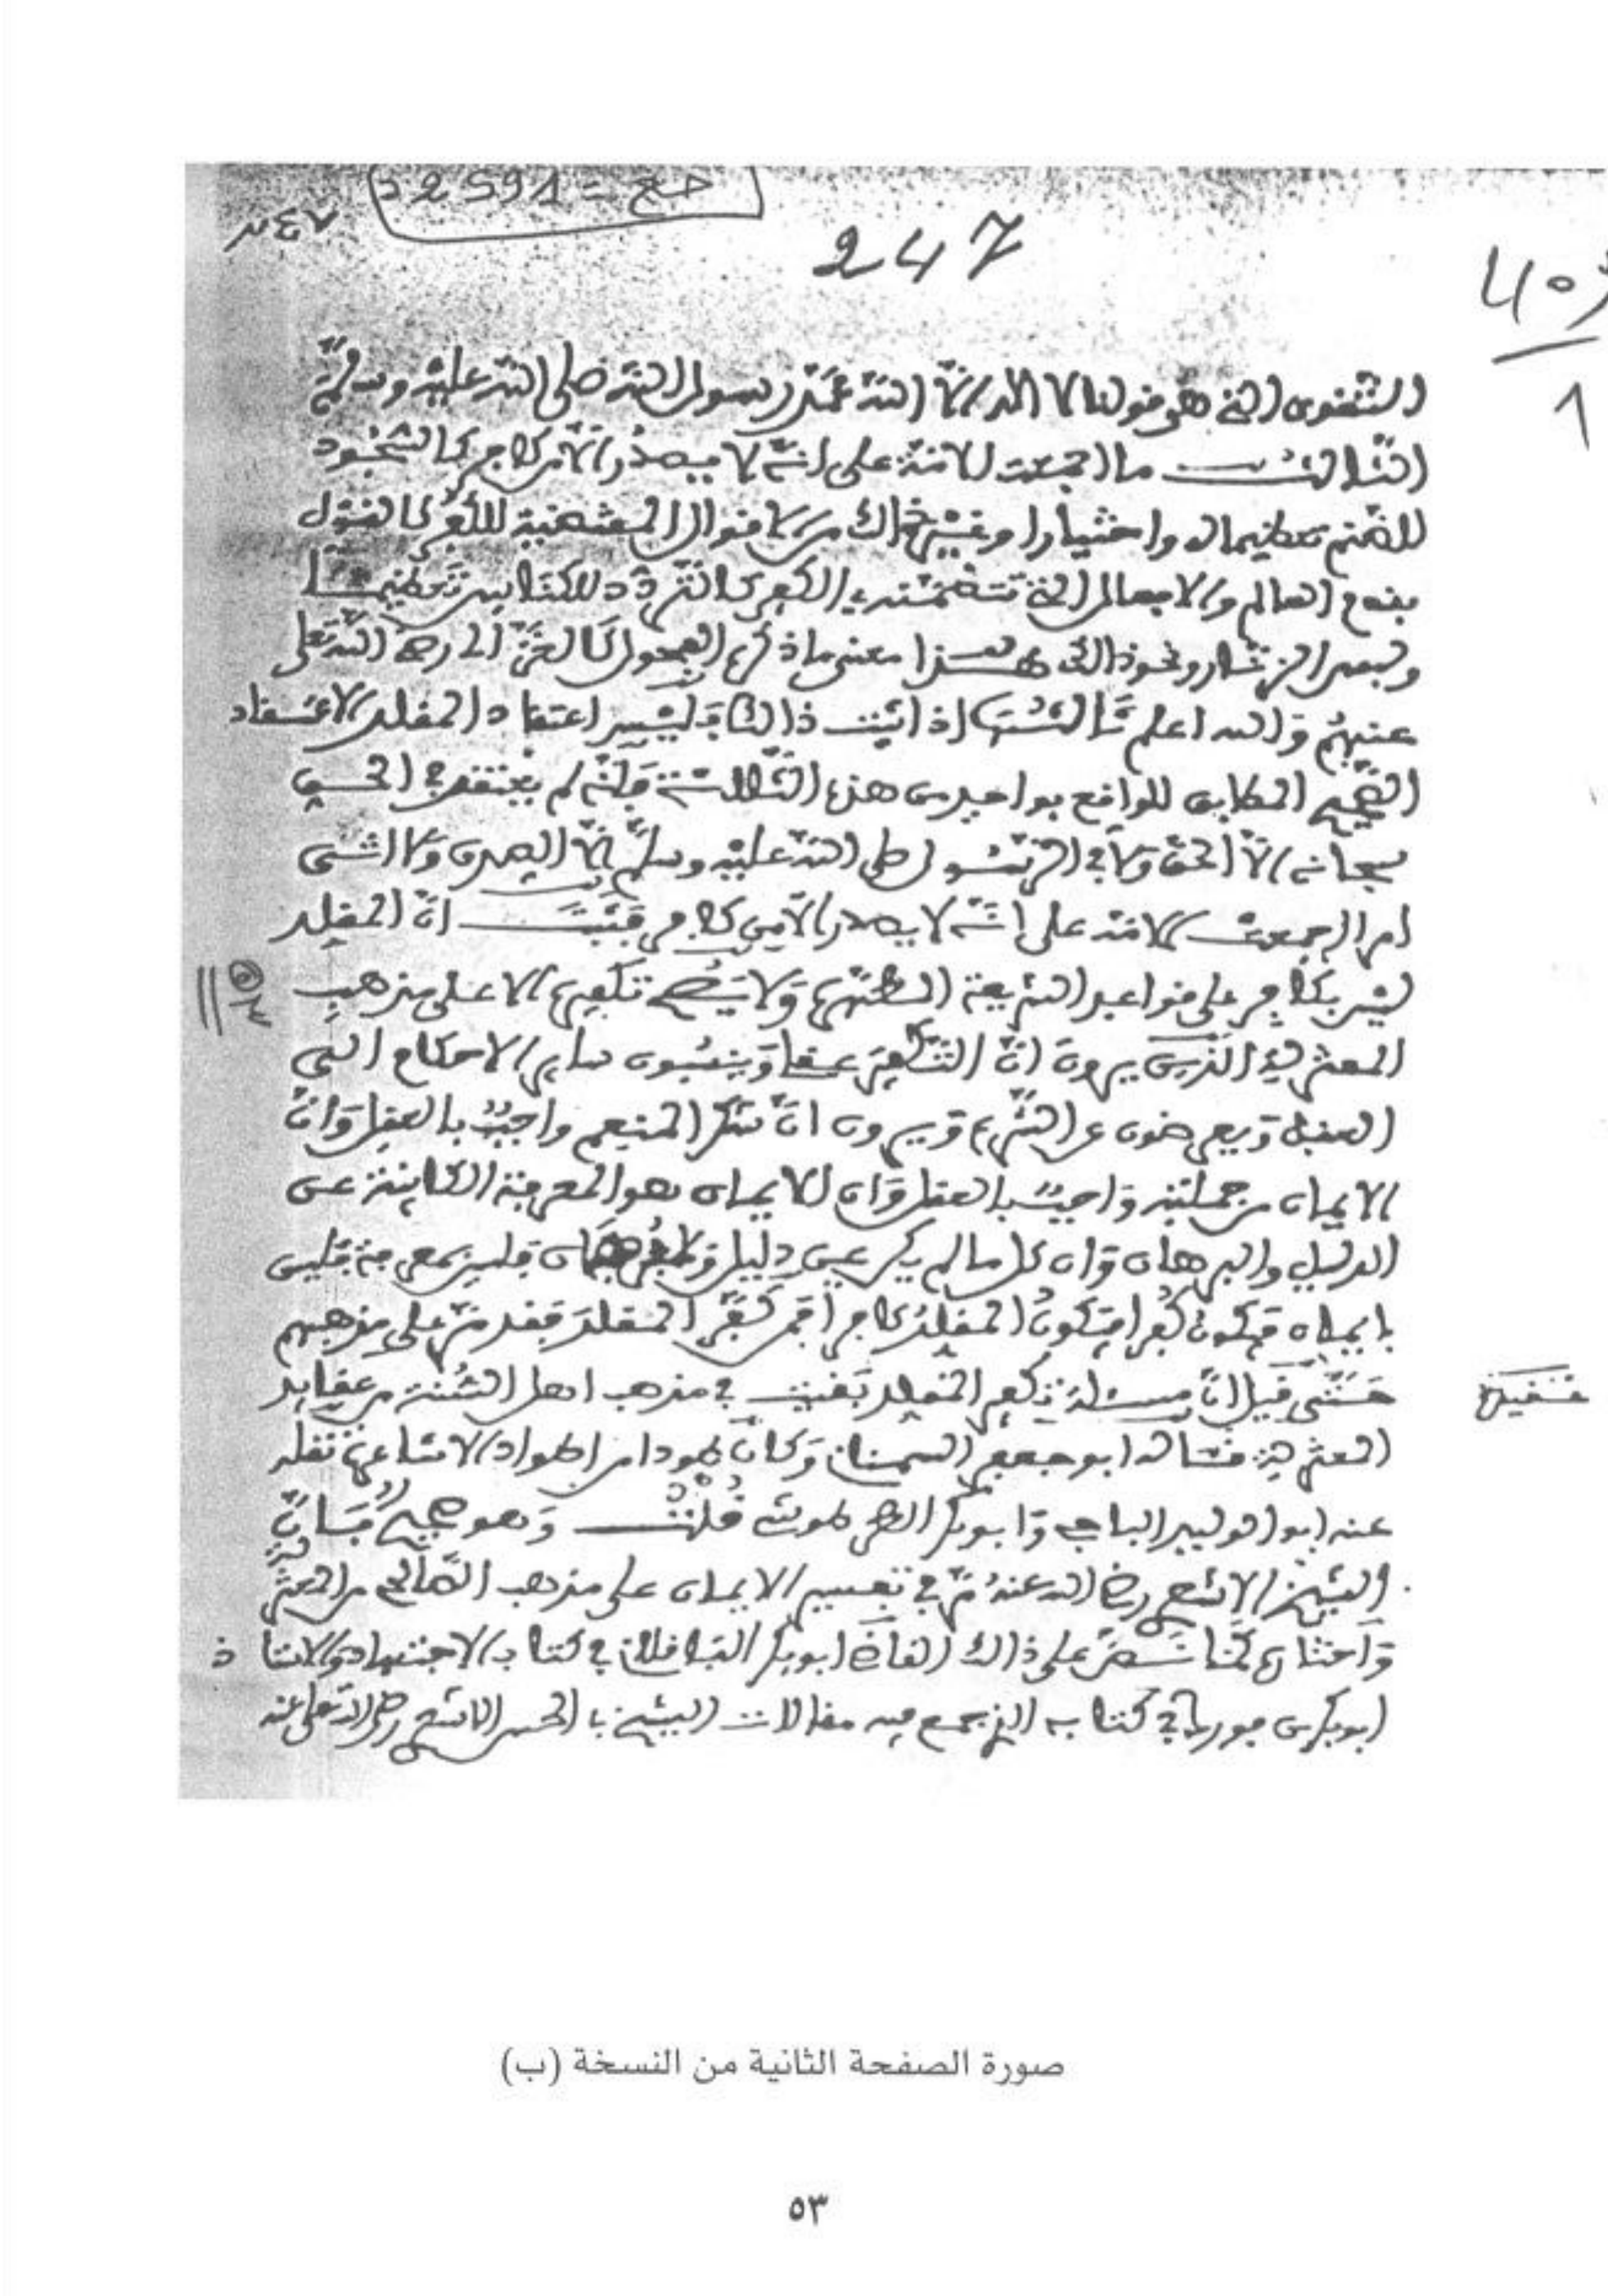 خع = 2591 د
٢٤٧
247
التقوى التي هو قولنا لا اله الا الله محمد رسول الله صلى الله عليه وسلم
الثالث ما اجمعت الامة على انه لا يصدر الا من كافر كالسجود
للصنم تعظيما له واختيارا وغير ذالك من الاقوال المقتضية للكفر كالقول
بقدم العالم والافعال التي تتضمنه الكفر كالتردد للكنايس تعظيما
ولبس الزنار ونحو ذالك فهذا معنى ما ذكره الفحول كالغزالي رحمه الله تعلى
عنهم والله اعلم اذا ثبت ذالك فليس اعتقاد المقلد الاعتقاد
الصحيح المطابق للواقع بواحد من هذه الثلاثة فانه لم يعتقد في الحق
سبحانه الا الحق ولا في الرسول صلى الله عليه وسلم الا الصدق ولا اتى
امرا اجمعت الامة على انه لا يصدر الا من كافر فثبت ان المقلد
ليس بكافر على قواعد الشريعة المطهرة ولا يصح تكفيره الا على مذهب
المعتزلة الذين يرون ان التكفير عقلا وينسبون ساير الاحكام الى
العقل ويعرضون عن الشرع ويرون ان شكر المنعم واجب بالعقل وان
الايمان من جملته واجب بالعقل وان الايمان هو المعرفة الكاينة عن
الدليل والبرهان وان كل ما لم يكن عن دليل وبرهان فليس بمعرفة فليس
بايمان فيكون كفرا فيكون المقلد كافرا فمن كفر المقلد فقد مر على مذهبهم
حتى قيل ان مسئلة تكفير المقلد بقيت في مذهب اهل السنة من عقايد
المعتزلة قاله ابو جعفر السمناني وكان طودا من اطواد الاشاعرة نقله
عنه ابو الوليد الباجي وابو بكر الطرطوشي قلت وهو صحيح فان
الشيخ الاشعري رضي الله عنه مر في تفسير الايمان على مذهب الصالحي من المعتزلة
واختاره كما نص على ذالك القاضي ابو بكر الباقلاني في كتاب الاجتهاد والاستاذ
ابو بكر بن فورك في كتابه الذي جمع فيه مقالات الشيخ ابا الحسن الاشعري رضي الله تعلى عنه
صورة الصفحة الثانية من النسخة (ب)
٥٣